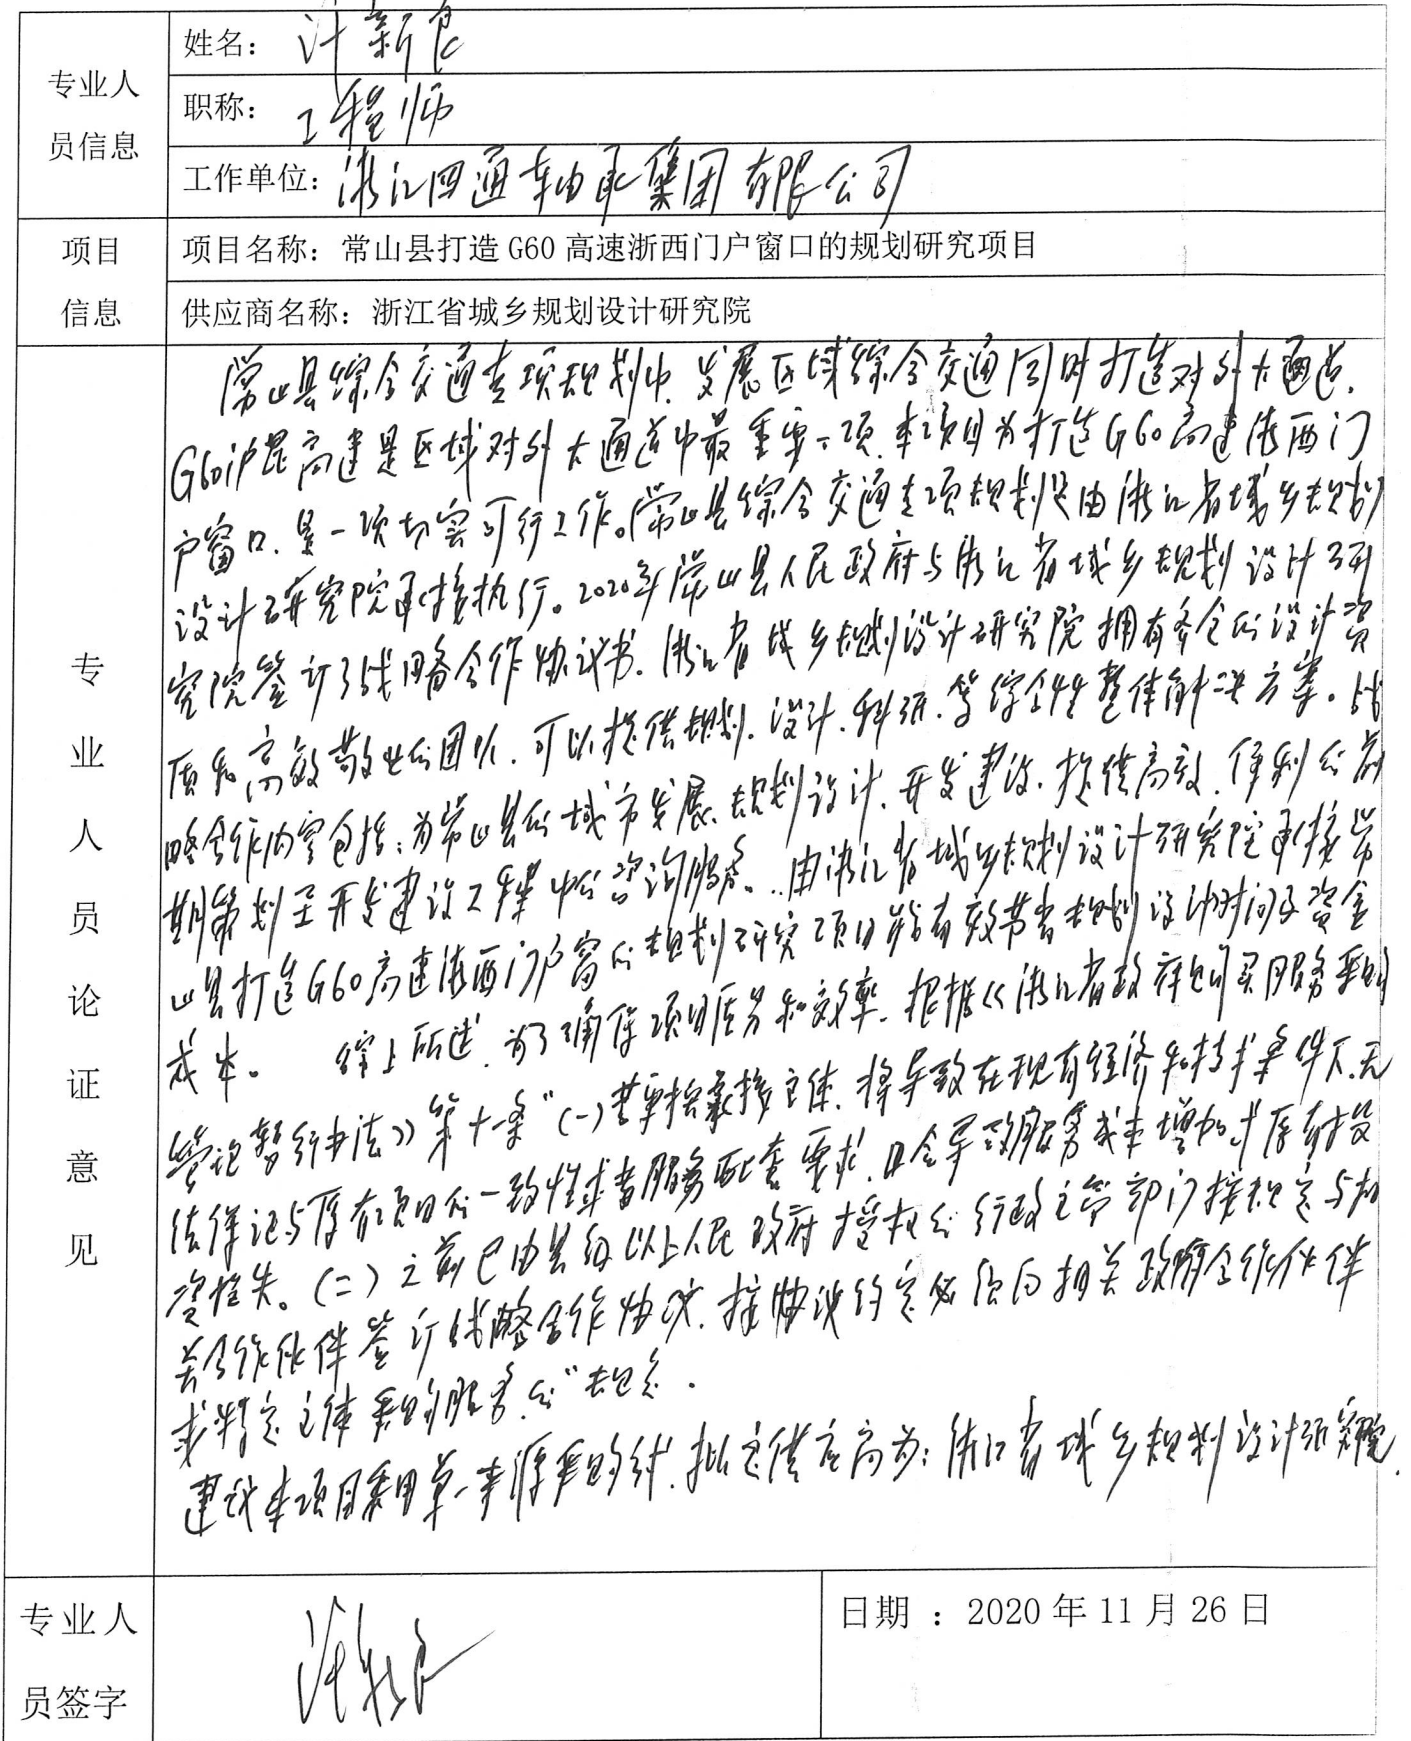 专业人员信息
姓名：计新良
职称：工程师
工作单位：浙江四通轴承集团有限公司
项目信息
项目名称：常山县打造 G60 高速浙西门户窗口的规划研究项目
供应商名称：浙江省城乡规划设计研究院
专业人员论证意见
常山县综合交通专项规划中，发展区域综合交通同时打造对外大通道，
G60沪昆高速是区域对外大通道中最重要一项，本项目为打造G60高速浙西门
户窗口，是一项切实可行工作。常山县综合交通专项规划是由浙江省城乡规划
设计研究院承接执行。2020年常山县人民政府与浙江省城乡规划设计研
究院签订了战略合作协议书，浙江省城乡规划设计研究院拥有齐全的设计资
质和高效敬业的团队，可以提供规划、设计、科研、等综合性整体解决方案。战
略合作内容包括：为常山县的城市发展、规划设计、开发建设，提供高效、便利的前
期策划至开发建设工程中的咨询服务。由浙江省城乡规划设计研究院承接常
山县打造G60高速浙西门户窗的规划研究项目能有效节省规划设计时间及资金
成本。 综上所述，为了确保项目质务和效率，根据《浙江省政府购买服务采购
管理暂行办法》第十条“（一）若更换承接主体，将导致在现有经济和技术条件下，无
法保证与原有项目的一致性或者服务配套要求，且会导致服务成本增加或原有投
资损失。（二）之前已由县级以上人民政府授权的行政主管部门按规定与相
关合作伙伴签订战略合作协议，按协议约定必须向相关政府合作伙伴
或特定主体采购服务的”规定。
建议本项目采用单一来源采购，拟定供应商为：浙江省城乡规划设计研究院。
专业人员签字
计新良
日期 ：2020 年 11 月 26 日